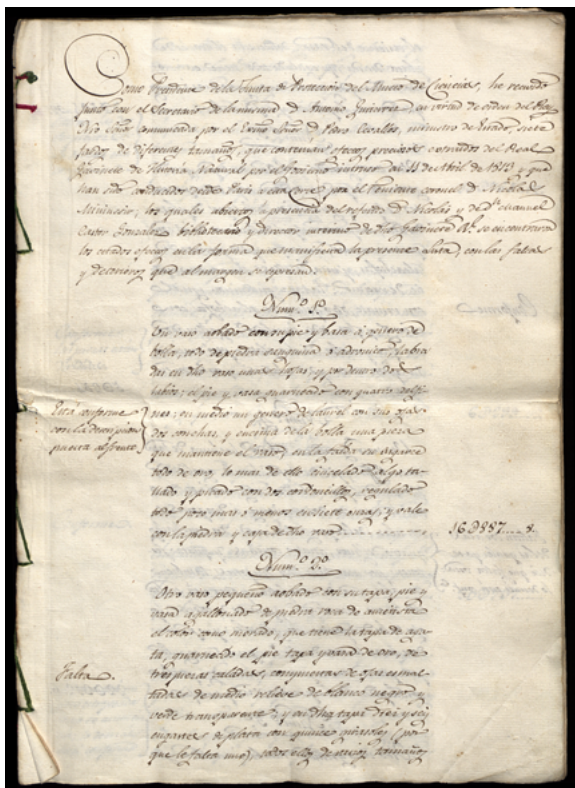 Como Presidente de la Junta de Proteccion del Museo de Ciencias, he recivido
junto con el Secretario de la misma D. Antonio Gutierrez, en virtud de orden del Rey
Ntro Señor comunicada por el Exmo Señor D. Pedro Cevallos, ministro de Estado, siete
fardos de diferentes tamaños, que contenian efectos preciosos extraidos del Real
Gavinete de Historia Natural por el Govierno intruso al 11 de Abril de 1813, que
han sido conducidos desde Paris a esta Corte por el Teniente coronel D. Nicolas
Miniussir; los quales abiertos a presencia del referido D. Nicolas y de D. Manuel
Castor Gonzalez bibliotecario y director interino de dho Gavinete Rl. se encontraron
los citados efectos en la forma que manifiesta la presente lista, con las faltas
y deterioros que al margen se expresan.
Num.º 1º
Un vaso aobado con su pie y basa a genero de
bolla, todo de piedra sanguina o adronica, labra
das en dho vaso unas hojas, y por dentro dos
labios; el pie y vasa guarnecido con quatro delfi
Está conforme
con la descripcion
puesta al frente
nes; en medio un genero de laurel con sus ojas
dos conchas, y encima de la bolla una pieza
que mantiene el vaso, en la tarda su
todo de oro, lo mas de ello cincelado algo ta-
llado y picado con dos cordoncillos, regulado
todo poco mas o menos en siete onzas, y vale
con la piedra y caja de dho vaso
16 D887....8.
Num.º 2º
Otro vaso pequeño aobado con su tapa, pie y
vasa agallonado de piedra roca de amatista
el color como morado, que tiene la tapa de aga-
ta, guarnecido el pie tapa y vasa de oro, de
tres piezas caladas, compuestas de ojas esmal-
Falta.
tadas de medio relieve de blanco negro y
verde transparente, y en dha tapa diez y seis
engastes de plata con quince girasoles (por
que le falta uno), todos ellos de varios tamaños